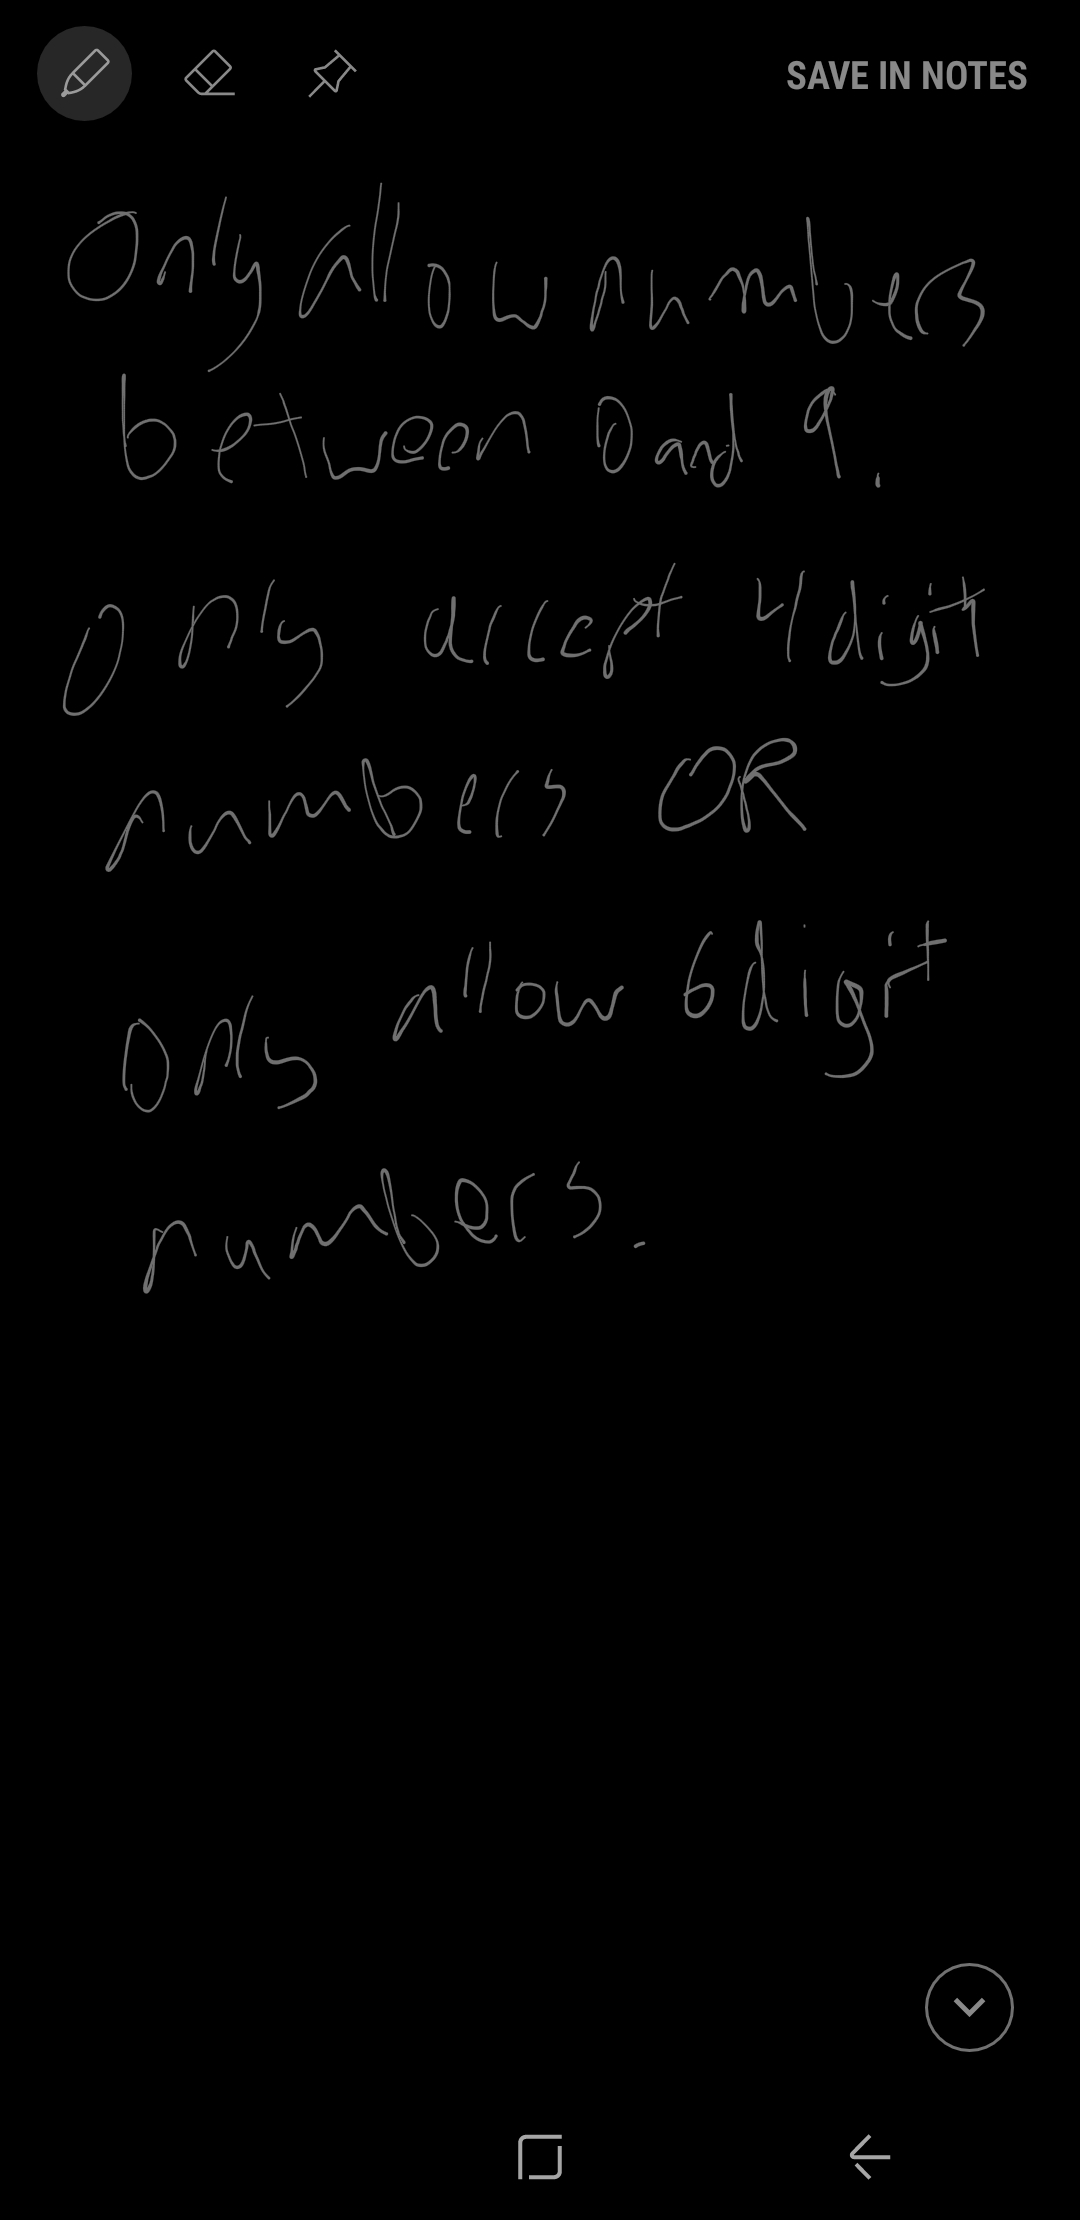 SAVE IN NOTES
Only allow numbers
between 0 and 9.
Only accept 4 digit
numbers OR
only allow 6 digit
numbers.